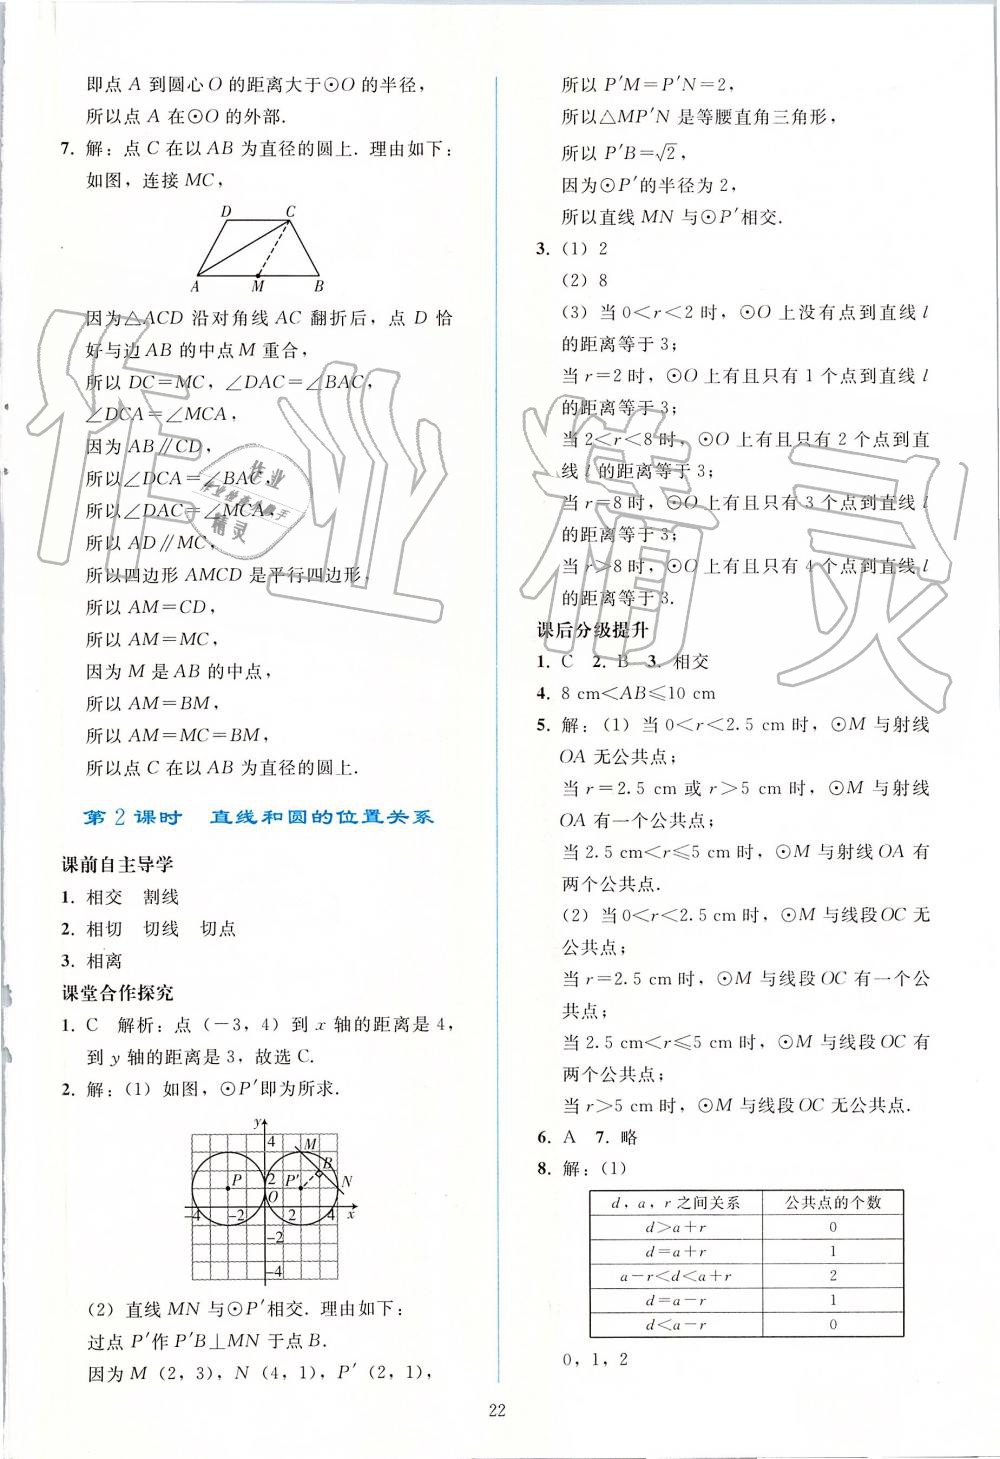 即点 A 到圆心 O 的距离大于⊙O 的半径,
所以点 A 在⊙O 的外部.
7. 解:点 C 在以 AB 为直径的圆上. 理由如下:
如图,连接 MC,
D C
A M B
因为△ACD 沿对角线 AC 翻折后,点 D 恰
好与边 AB 的中点 M 重合,
所以 DC=MC,∠DAC=∠BAC,
∠DCA=∠MCA,
因为 AB∥CD,
所以∠DCA=∠BAC,
所以∠DAC=∠MCA,
所以 AD∥MC,
所以四边形 AMCD 是平行四边形,
所以 AM=CD,
所以 AM=MC,
因为 M 是 AB 的中点,
所以 AM=BM,
所以 AM=MC=BM,
所以点 C 在以 AB 为直径的圆上.
第 2 课时 直线和圆的位置关系
课前自主导学
1. 相交 割线
2. 相切 切线 切点
3. 相离
课堂合作探究
1. C 解析:点(-3,4)到 x 轴的距离是 4,
到 y 轴的距离是 3,故选 C.
2. 解:(1)如图,⊙P′即为所求.
y
4 M
B
P 2 P′ N
O
-4 -2 2 4 x
-2
-4
(2)直线 MN 与⊙P′相交. 理由如下:
过点 P′作 P′B⊥MN 于点 B.
因为 M(2,3),N(4,1),P′(2,1),
所以 P′M=P′N=2,
所以△MP′N 是等腰直角三角形,
所以 P′B=√2,
因为⊙P′的半径为 2,
所以直线 MN 与⊙P′相交.
3. (1)2
(2)8
(3)当 0<r<2 时,⊙O 上没有点到直线 l
的距离等于 3;
当 r=2 时,⊙O 上有且只有 1 个点到直线 l
的距离等于 3;
当 2<r<8 时,⊙O 上有且只有 2 个点到直
线 l 的距离等于 3;
当 r=8 时,⊙O 上有且只有 3 个点到直线 l
的距离等于 3;
当 r>8 时,⊙O 上有且只有 4 个点到直线 l
的距离等于 3.
课后分级提升
1. C 2. B 3. 相交
4. 8 cm<AB≤10 cm
5. 解:(1)当 0<r<2.5 cm 时,⊙M 与射线
OA 无公共点;
当 r=2.5 cm 或 r>5 cm 时,⊙M 与射线
OA 有一个公共点;
当 2.5 cm<r≤5 cm 时,⊙M 与射线 OA 有
两个公共点.
(2)当 0<r<2.5 cm 时,⊙M 与线段 OC 无
公共点;
当 r=2.5 cm 时,⊙M 与线段 OC 有一个公
共点;
当 2.5 cm<r≤5 cm 时,⊙M 与线段 OC 有
两个公共点;
当 r>5 cm 时,⊙M 与线段 OC 无公共点.
6. A 7. 略
8. 解:(1)
d,a,r 之间关系 公共点的个数
d>a+r 0
d=a+r 1
a-r<d<a+r 2
d=a-r 1
d<a-r 0
0,1,2
22
作业精灵
作业
作业检查小助手
精灵